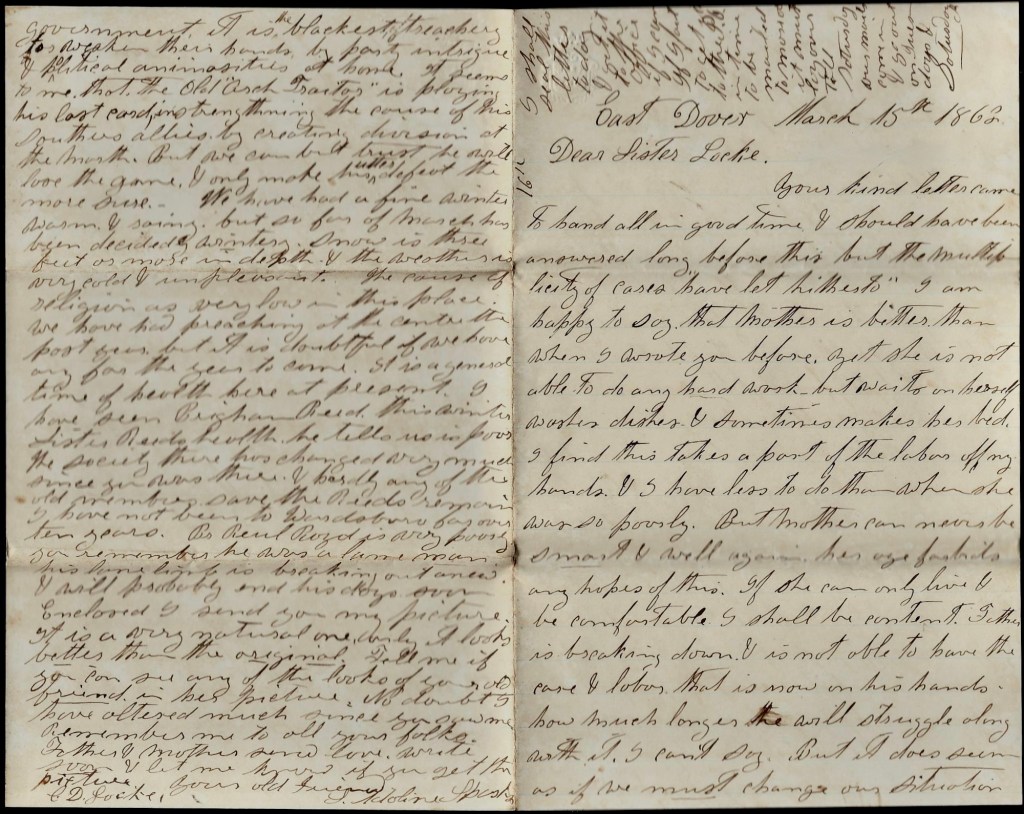 East Dover March 15th 1862.
Dear Sister Locke.
Your kind letter came
to hand all in good time & should have been
answered long before this but the multip
licity of cares "have let hitherto" I am
happy to say that Mother is better than
when I wrote you before. yet she is not
able to do any hard work but waits on herself
washes dishes & sometimes makes her bed.
I find this takes a part of the labor off my
hands. & I have less to do than when she
was so poorly. But Mother can never be
smart & well again. her age forbids
any hopes of this. If she can only live &
be comfortable I shall be content. Father
is breaking down. & is not able to have the
care & labor that is now on his hands.
how much longer he will struggle along
with it, I can't say. But it does seem
as if we must change our situation
16th
I shall
seal this
letter
today
& get it
to the
office
in time
to be
mailed
government. It is the blackest treachery
to weaken their hands by party intrigue
& political animosities at home. It seems
to me, that the Old "Arch Traitor" is playing
his last card, in strengthning the cause of his
Southern allies, by creating division at
the North. But we can but trust he will
lose the game, & only make his utter defeat the
more sure. We have had a fine winter
warm & sunny. but so far of March has
been decidedly wintery. Snow is three
feet or more in depth. & the weather is
very cold & unpleasant. The cause of
religion is very low in this place.
we have had preaching at the centre the
past year. but it is doubtful if we have
any for the year to come. It is a general
time of health here at present. I
have seen Brigham Reed this winter
Sister Reeds health he tells us is poor
the society there has changed very much
since you was there. & hardly any of the
old members save the Reeds remain
I have not been to Wardsboro for over
ten years. Br. is very poorly
you remember he was a lame man
his is breaking out anew
& will probably end his days soon
Enclosed I send you my picture.
It is a very natural one, only it looks
better than the original. Tell me if
you can see any of the looks of your old
friend in her picture. No doubt I
have altered much since you saw me
Remember me to all your folks.
Father & Mother send love. write
soon & let me know if you get the
picture. Your old Friend
C D. Locke. Adoline